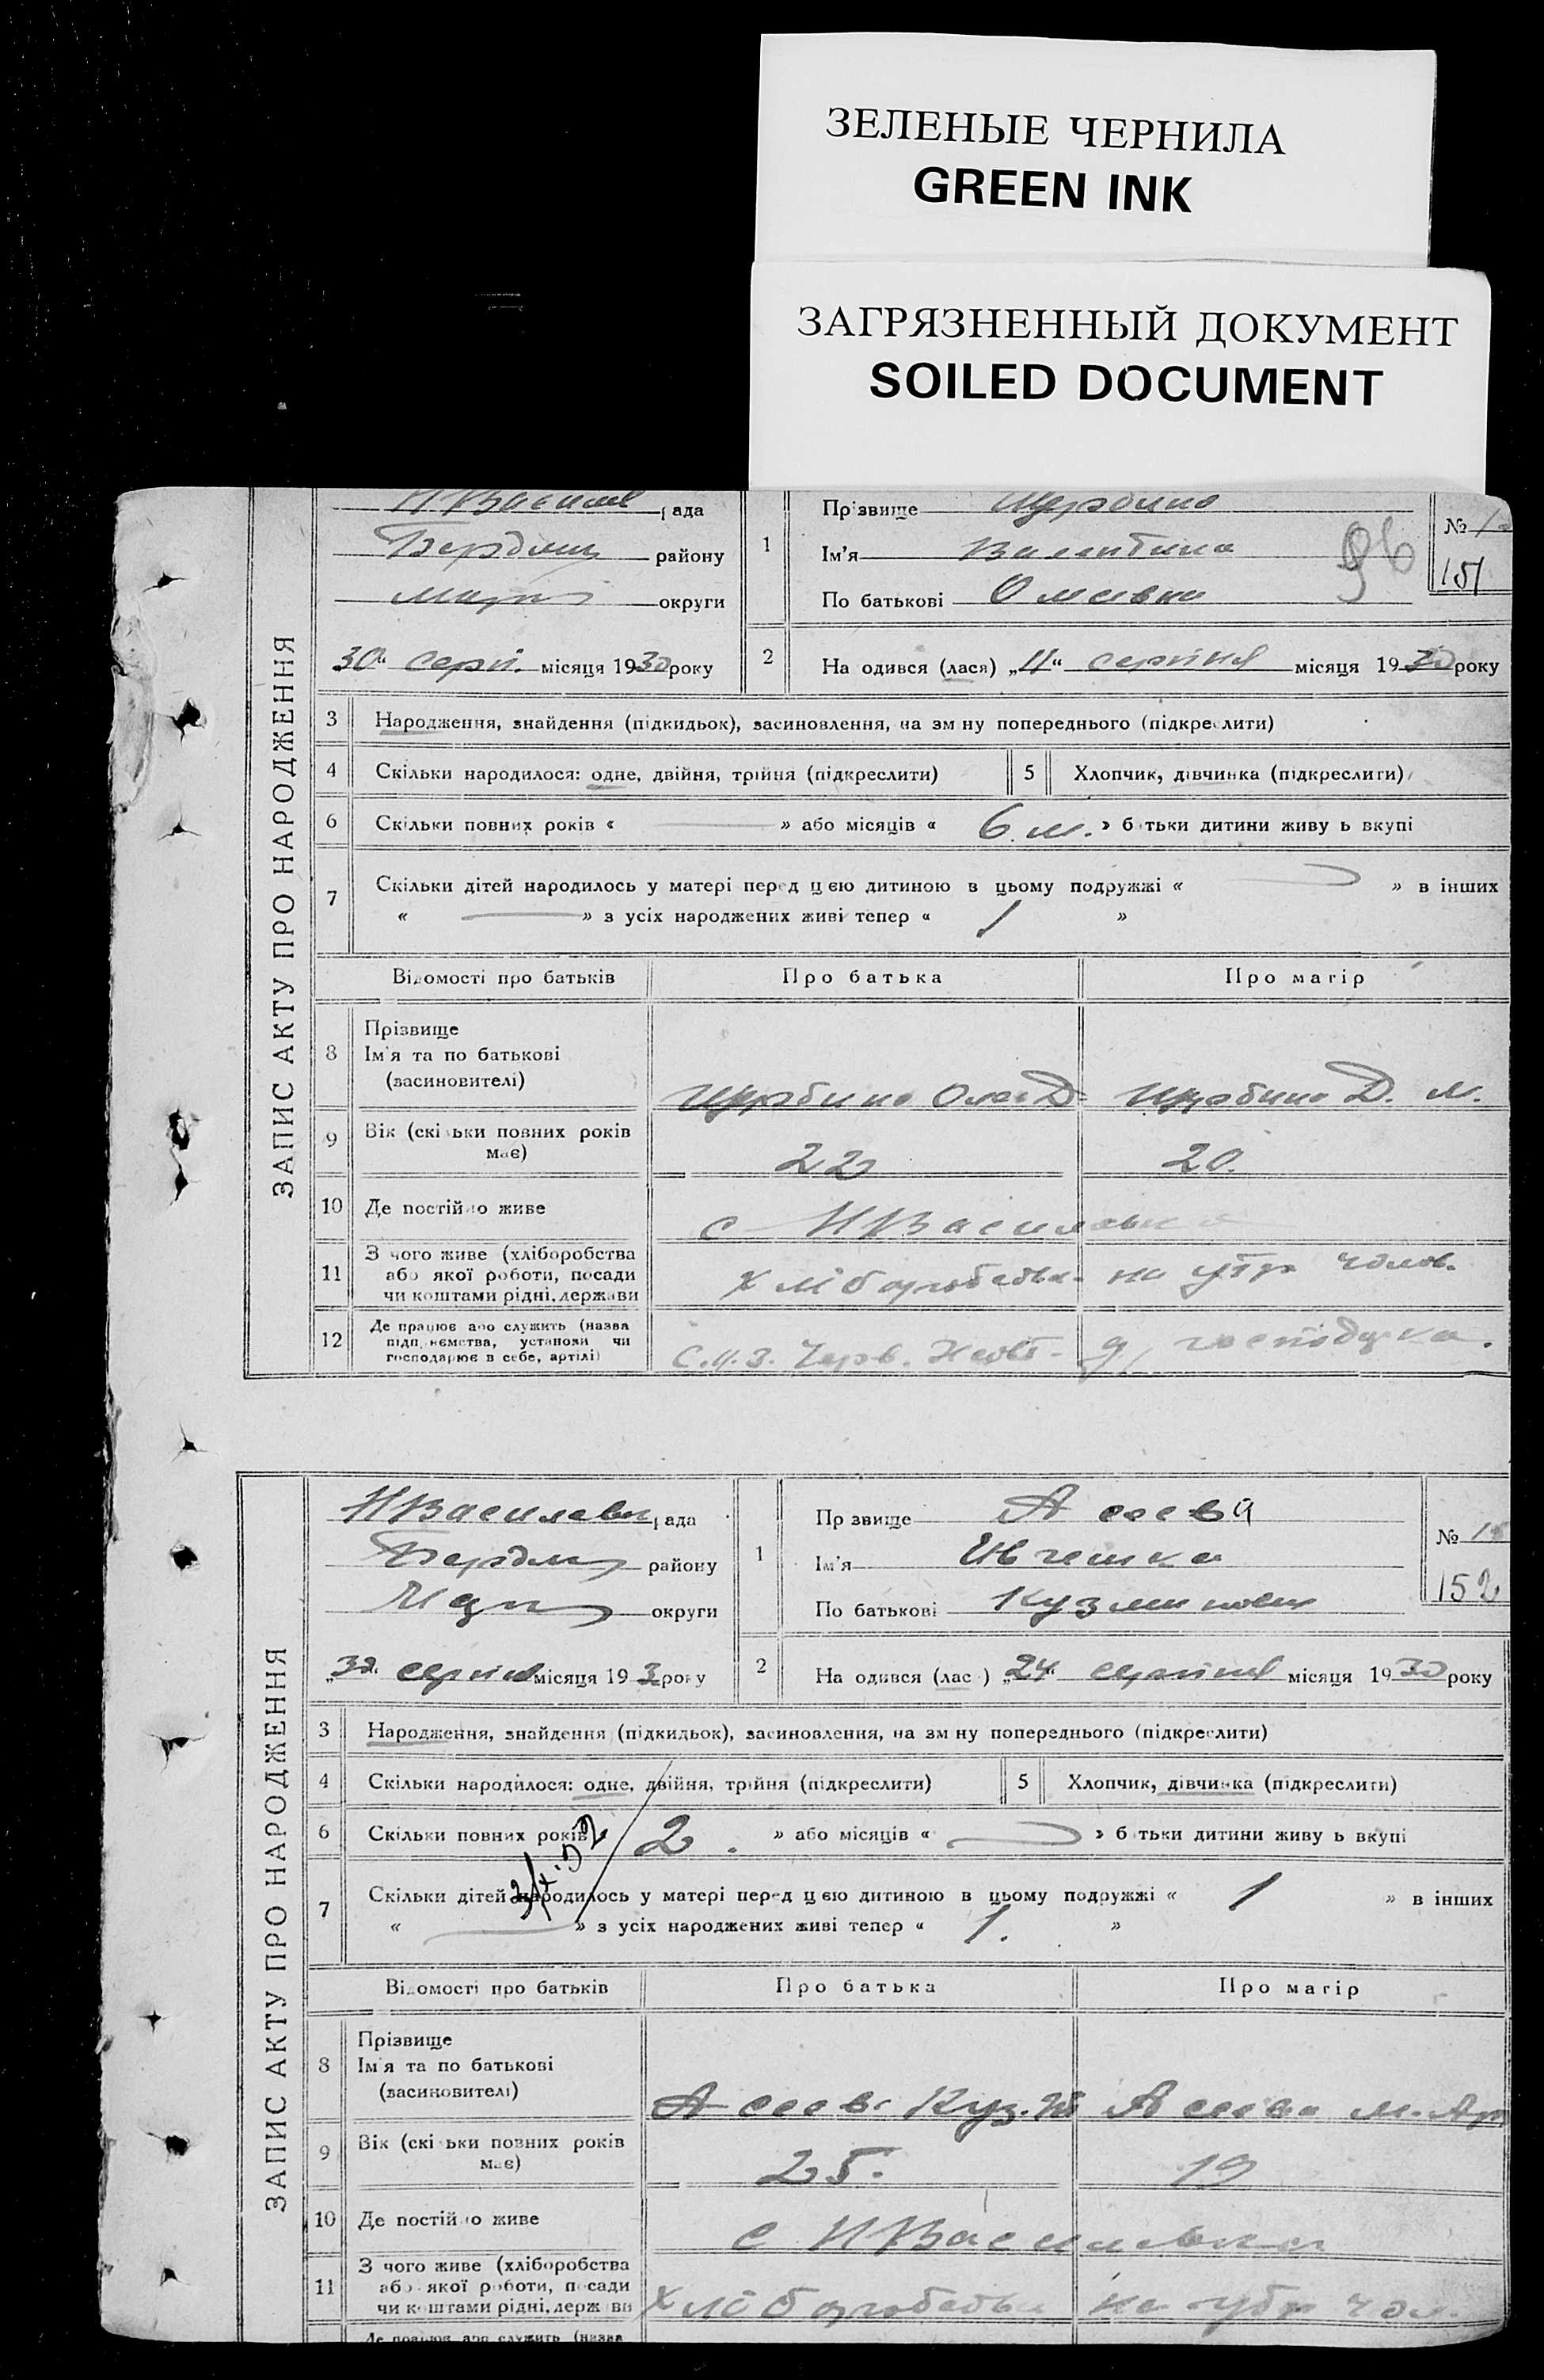 ЗЕЛЕНЫЕ ЧЕРНИЛА
GREEN INK
ЗАГРЯЗНЕННЫЙ ДОКУМЕНТ
SOILED DOCUMENT
ЗАПИС АКТУ ПРО НАРОДЖЕННЯ
НВасилів рада
Бердян району
округи
30 серп. місяця 1930 року
1 Прізвище Щербина
Ім'я Валентина
По батькові
96
№
151
2 На одився (лася) „11“ серпня місяця 1930 року
3 Народження, знайдення (підкидьок), засиновлення, на зм ну попереднього (підкреслити)
4 Скільки народилося: одне, двійня, трійня (підкреслити) 5 Хлопчик, дівчинка (підкреслити)
6 Скільки повних років « » або місяців « 6 м. » б тьки дитини живу ь вкупі
7 Скільки дітей народилось у матері перед цією дитиною в цьому подружжі « » в інших
« » з усіх народжених живі тепер « 1 »
Відомості про батьків Про батька Про матір
8 Прізвище
Ім'я та по батькові
(засиновителі)
Щербина Щербина Д. М.
9 Вік (скі ьки повних років
має)
22 20.
10 Де постій о живе
с НВасилівка
11 З чого живе (хліборобства
або якої роботи, посади
чи коштами рідні, держави
на утр чолов.
12 Де працює або служить (назва
підприємства, установи чи
господарює в себе, артілі)
С.О.З. Черв. д/господарка.
ЗАПИС АКТУ ПРО НАРОДЖЕННЯ
НВасилевк рада
Бердян району
округи
„30“ серпня місяця 193 року
1 Пр звище Асєєва
Ім'я
По батькові Кузминовна
№ 15
152
2 На одився (лас ) „24“ серпня місяця 1930 року
3 Народження, знайдення (підкидьок), засиновлення, на зм ну попереднього (підкреслити)
4 Скільки народилося: одне, двійня, трійня (підкреслити) 5 Хлопчик, дівчинка (підкреслити)
6 Скільки повних років 2. » або місяців « » б тьки дитини живу ь вкупі
7 Скільки дітей народилось у матері перед цією дитиною в цьому подружжі « 1 » в інших
« » з усіх народжених живі тепер « 1. »
Відомості про батьків Про батька Про матір
8 Прізвище
Ім'я та по батькові
(засиновителі)
Асєєв Куз. Асєєва М.
9 Вік (скі ьки повних років
має)
25. 19
10 Де постій о живе
с НВасилівка
11 З чого живе (хліборобства
або якої роботи, посади
чи коштами рідні, держ ви
на утр чол.
Де працює або служить (назва